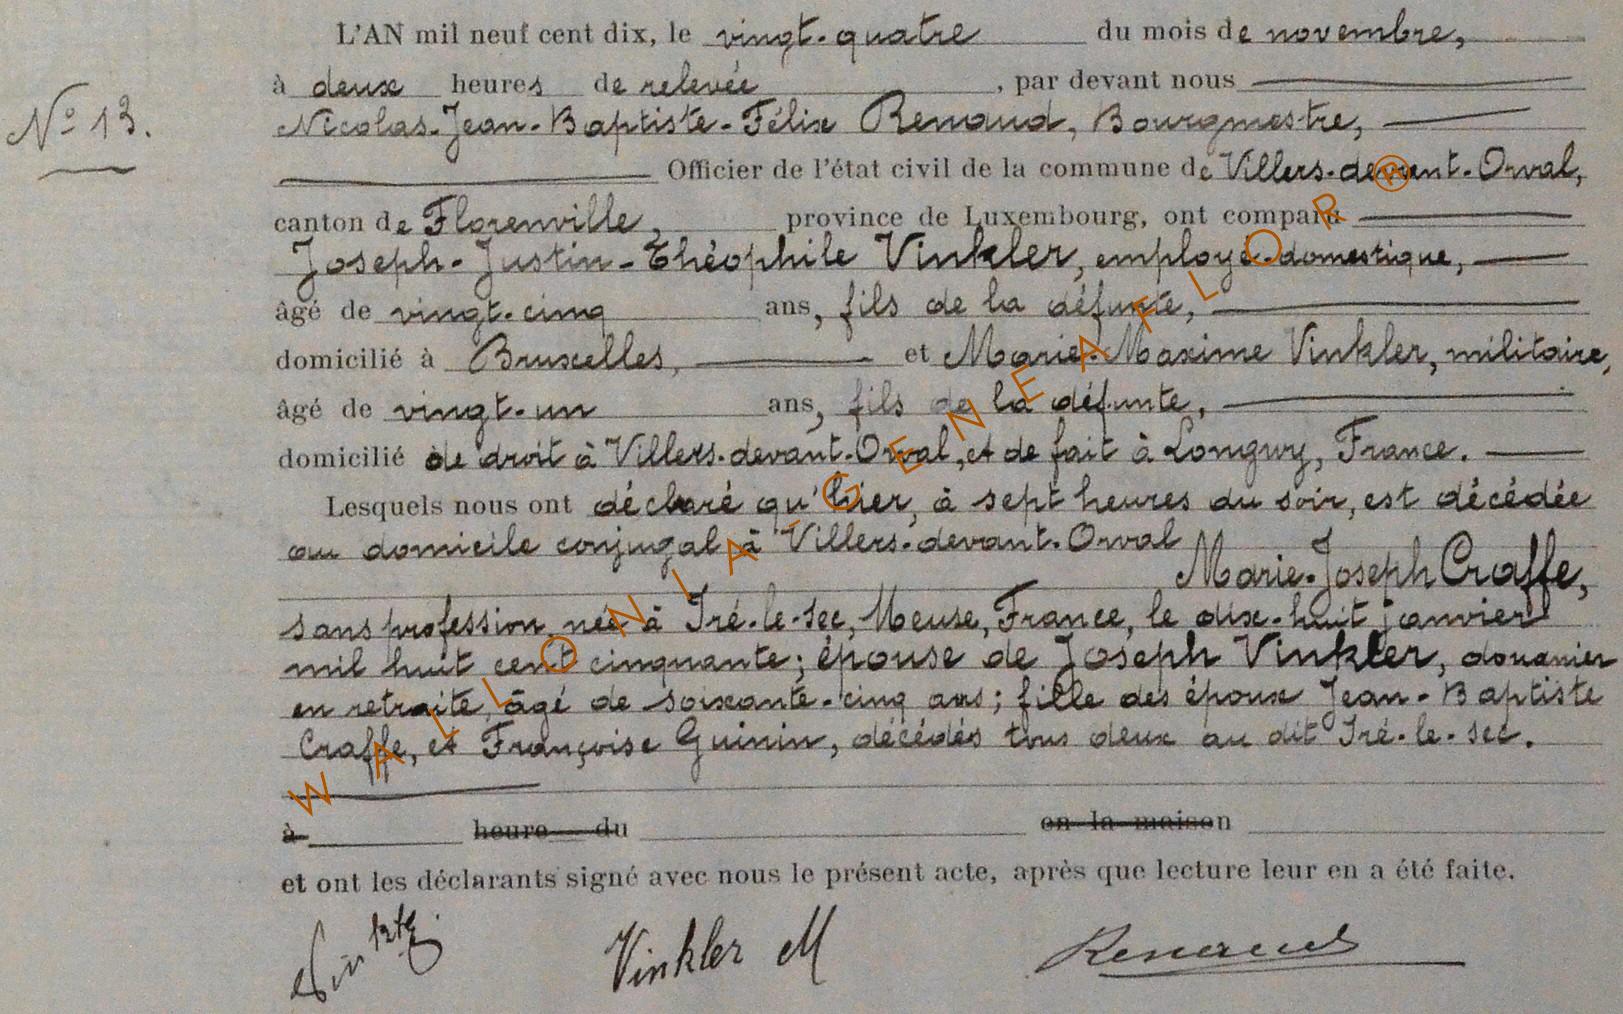 L'AN mil neuf cent dix, le vingt-quatre du mois de novembre,
à deux heures de relevée, par devant nous
Nº 13.
Nicolas-Jean-Baptiste-Félix Renaud, Bourgmestre,
Officier de l'état civil de la commune de Villers-devant-Orval,
canton de Florenville, province de Luxembourg, ont comparu
Joseph-Justin-Théophile Vinkler, employé-domestique,
âgé de vingt-cinq ans, fils de la défunte,
domicilié à Bruxelles, et Marie-Maxime Vinkler, militaire,
âgé de vingt-un ans, fils de la défunte,
domicilié de droit à Villers-devant-Orval, et de fait à Longwy, France.
Lesquels nous ont déclaré qu'hier, à sept heures du soir, est décédée
au domicile conjugal à Villers-devant-Orval
Marie-Joseph Craffe,
sans profession, née à Iré-le-sec, Meuse, France, le dix-huit janvier
mil huit cent cinquante; épouse de Joseph Vinkler, douanier
en retraite, âgé de soixante-cinq ans; fille des époux Jean-Baptiste
Craffe, et Françoise Guinin, décédés tous deux au dit Iré-le-sec.
à heure du en la maison
et ont les déclarants signé avec nous le présent acte, après que lecture leur en a été faite.
Vinkler M Renaud
WALLONIA-GENEAFLOR R®